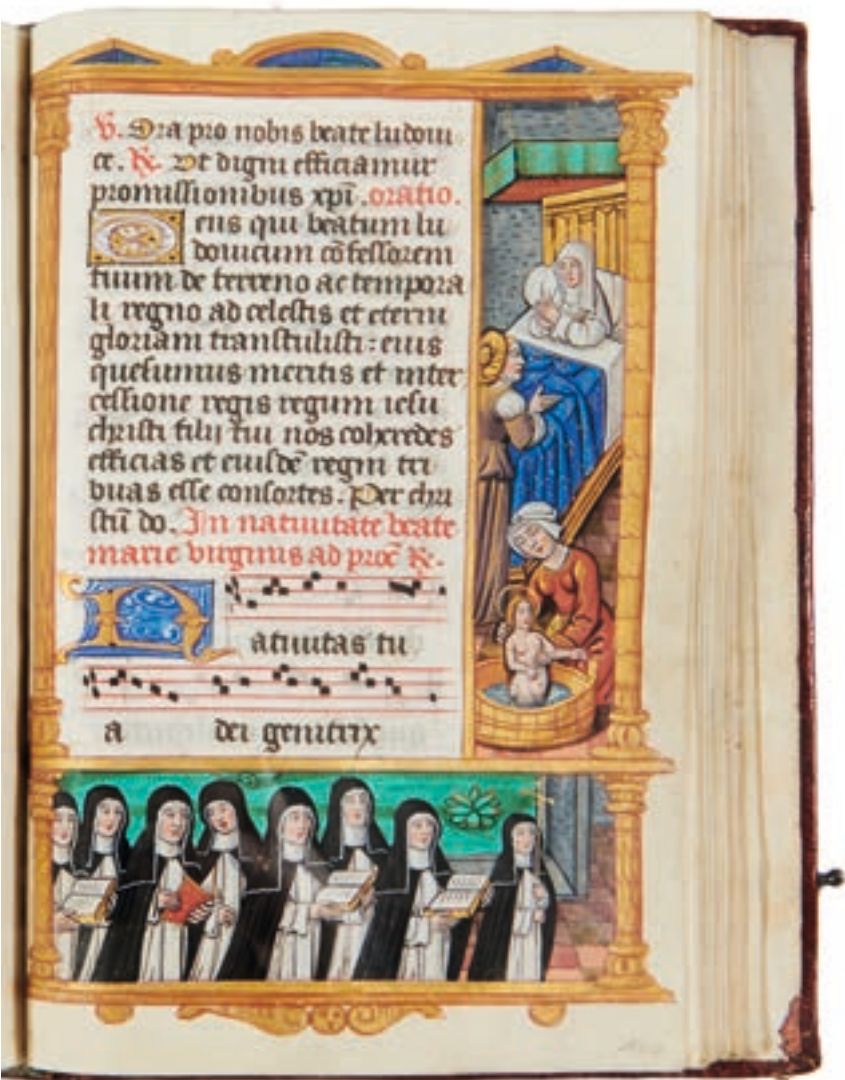 V. Ora pro nobis beate ludoui
ce. R. Vt digni efficiamur
promissionibus xpi .oratio.
Deus qui beatum lu
douicum cōfessorem
tuum de terreno ac tempora
li regno ad celestis et eterni
gloriam transtulisti: eius
quesumus meritis et inter
cessione regis regum iesu
christi filij tui nos coheredes
efficias et eiusdē regni tri
buas esse consortes. Per chri
stū do. In natiuitate beate
marie virginis ad proc̄ R.
Natiuitas tu
a dei genitrix